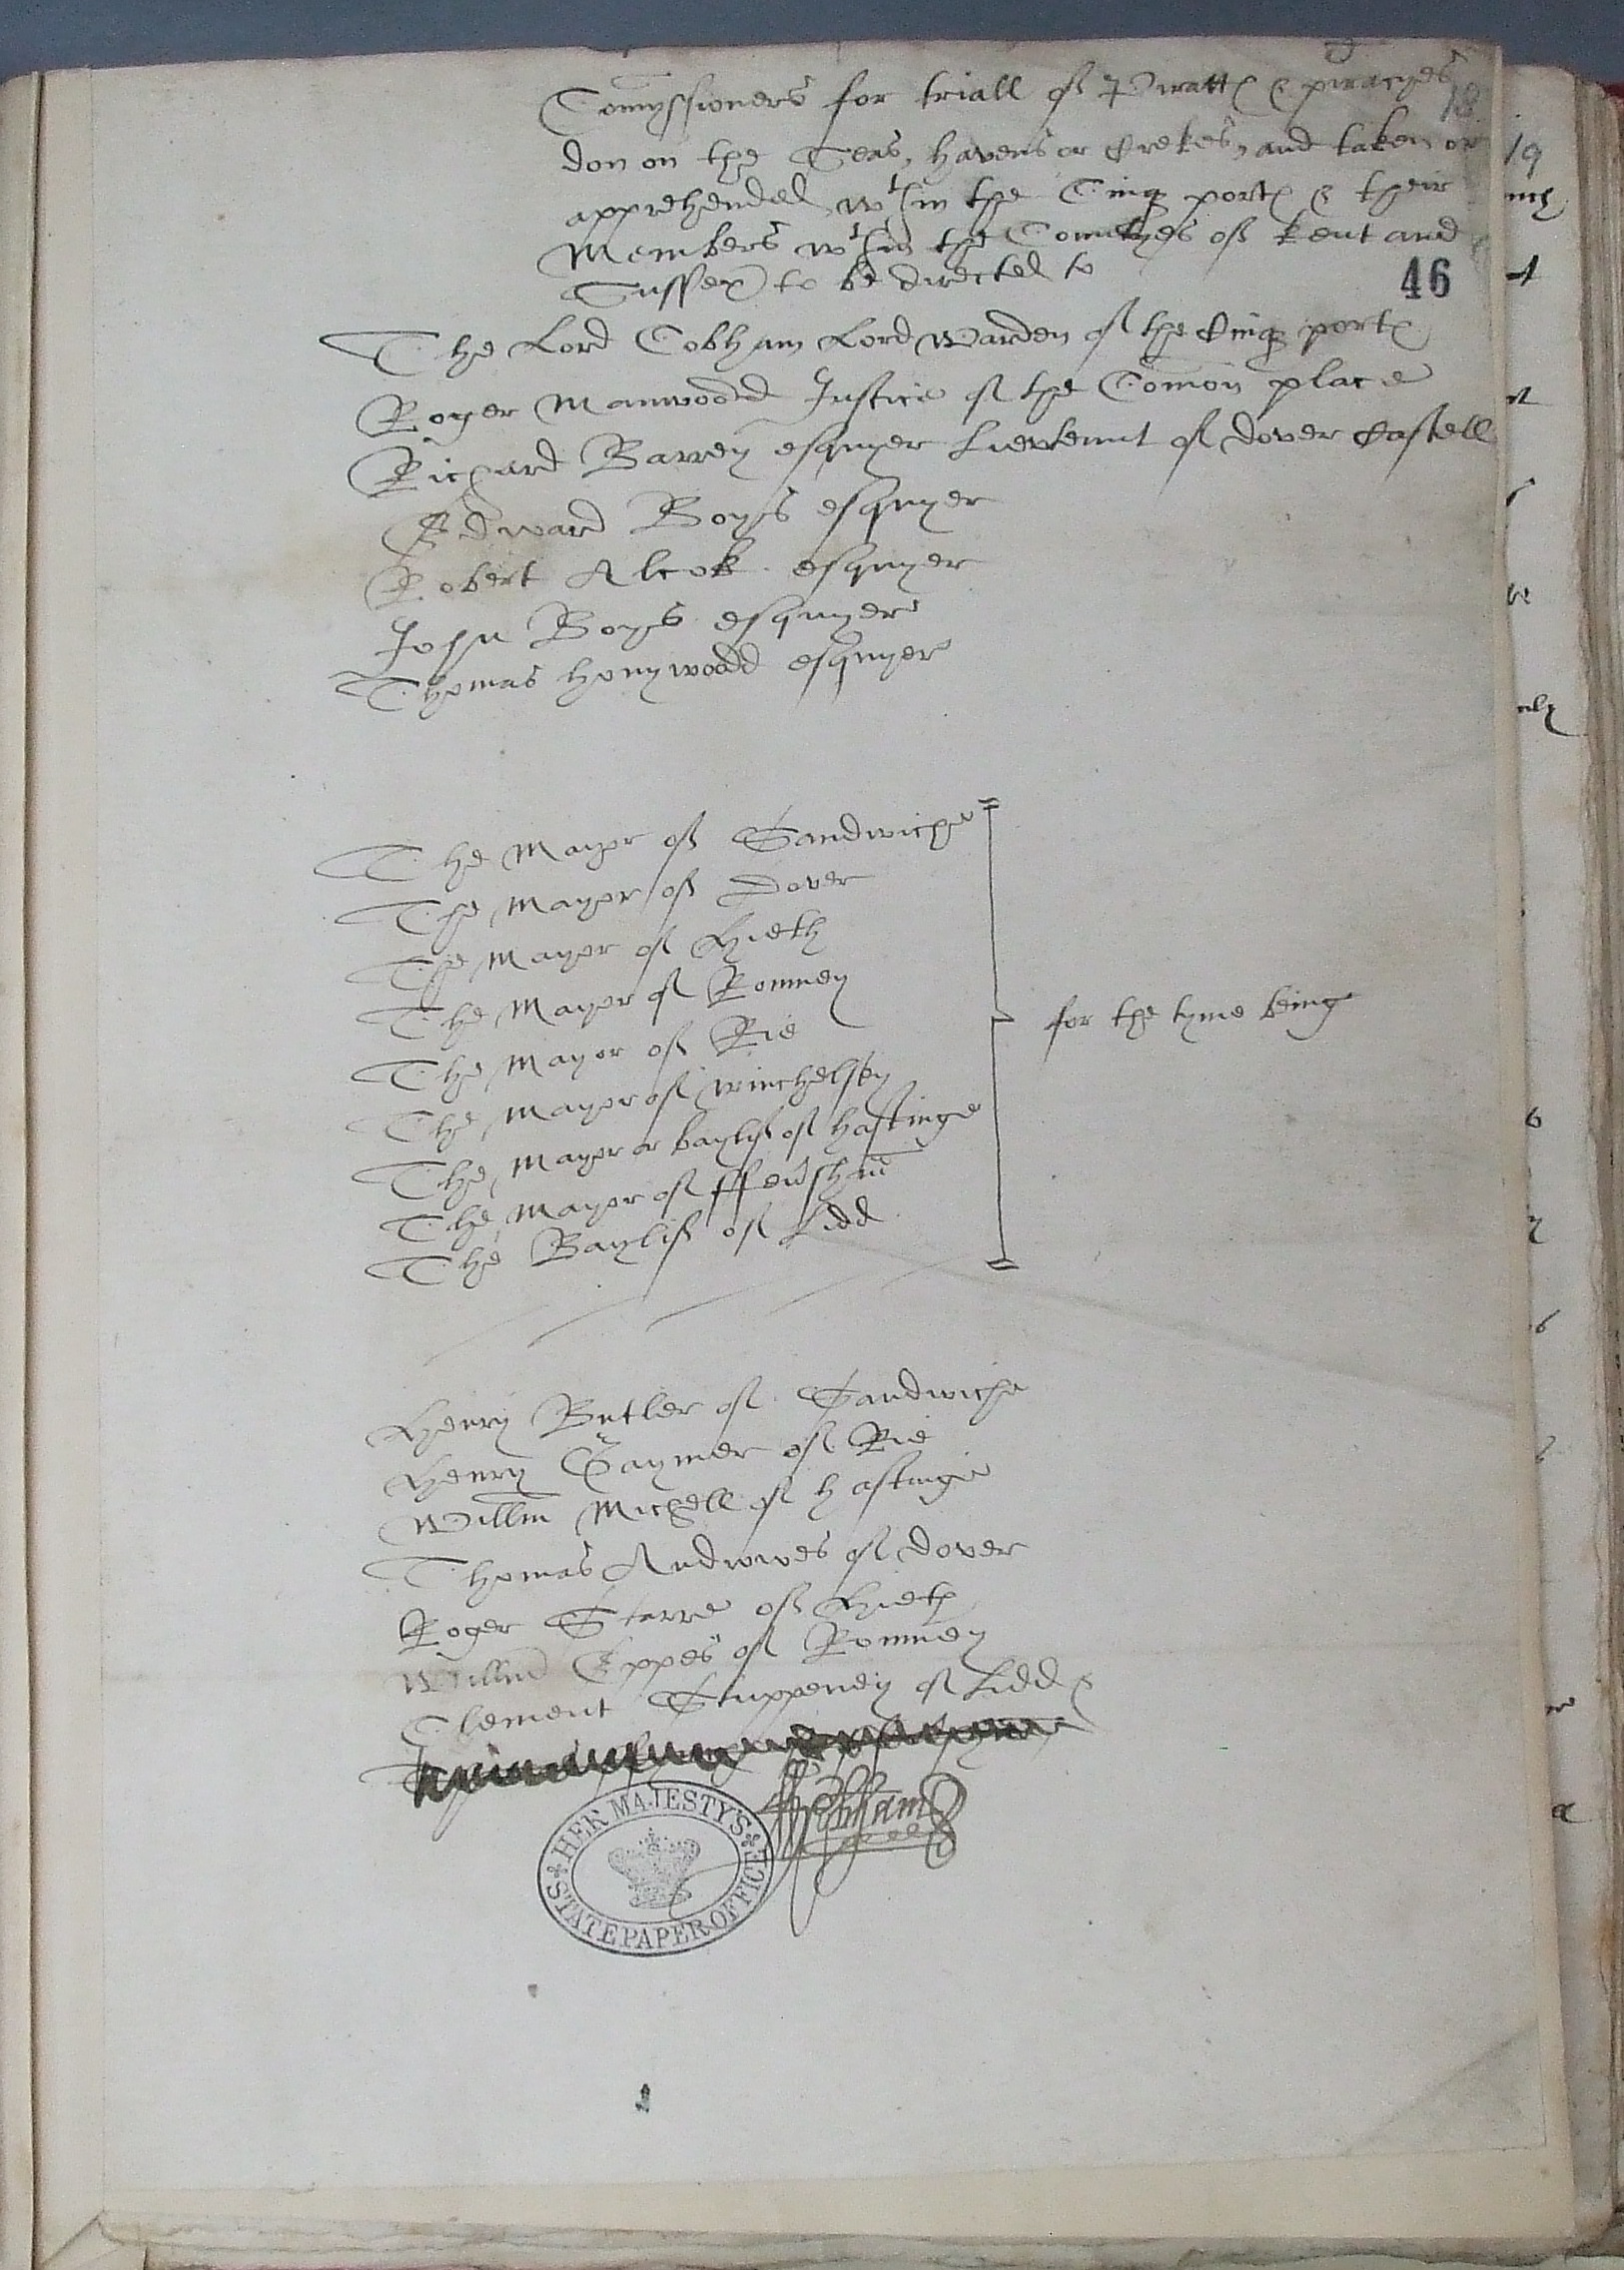 Comyssioners for triall of Piratt & piracyes
18
don on the Seas, havens or Crekes, and taken or
19
apprehended wthin the Cinq port & their
Members wthin the Countyes of Kent and
Sussex to be directed to
46
The Lord Cobham Lord Warden of the Cinq port
Roger Manwood Justice of the Comon place
Richard Barrey esquyer Lievtennt of dover Castell
Edward Boys esquyer
Robert Alcok esquyer
John Boys esquyer
Thomas honywood esquyer
The Mayor of Sandwiche
The Mayor of Dover
The Mayor of Hieth
The Mayor of Romney
for the tyme being
The Mayor of Rie
The Mayor of winchelsey
The Mayor or baylif of hastinge
The Mayor of ffevsham
The Baylif of Lidd
Henry Butler of Sandwiche
Henry Gaymer of Rie
Willm Michell of hastinge
Thomas Andrwes of dover
Roger Starre of Hieth
Willm Eppes of Romney
Clement Stuppeney of Lidd
Cobham
HER MAJESTY'S
STATE PAPER OFFICE